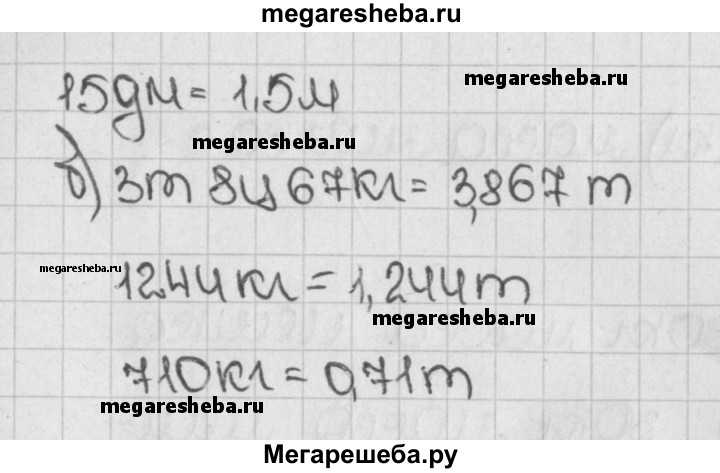 megaresheba.ru
15дм = 1,5м
megaresheba.ru
megaresheba.ru
б) 3т 8ц 67кг = 3,867 т
megaresheba.ru
1244кг = 1,244т
megaresheba.ru
710кг = 0,71т
megaresheba.ru
Мегарешеба.ру